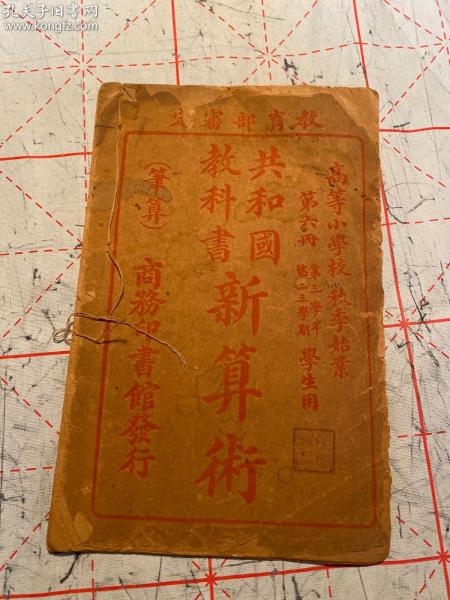 孔夫子旧书网
www.kongfz.com
教育部審定
高等小學校 秋季始業
第六冊 第三學年 第二三學期 學生用
共和國
教科書
新算術
(筆算)
商務印書館發行